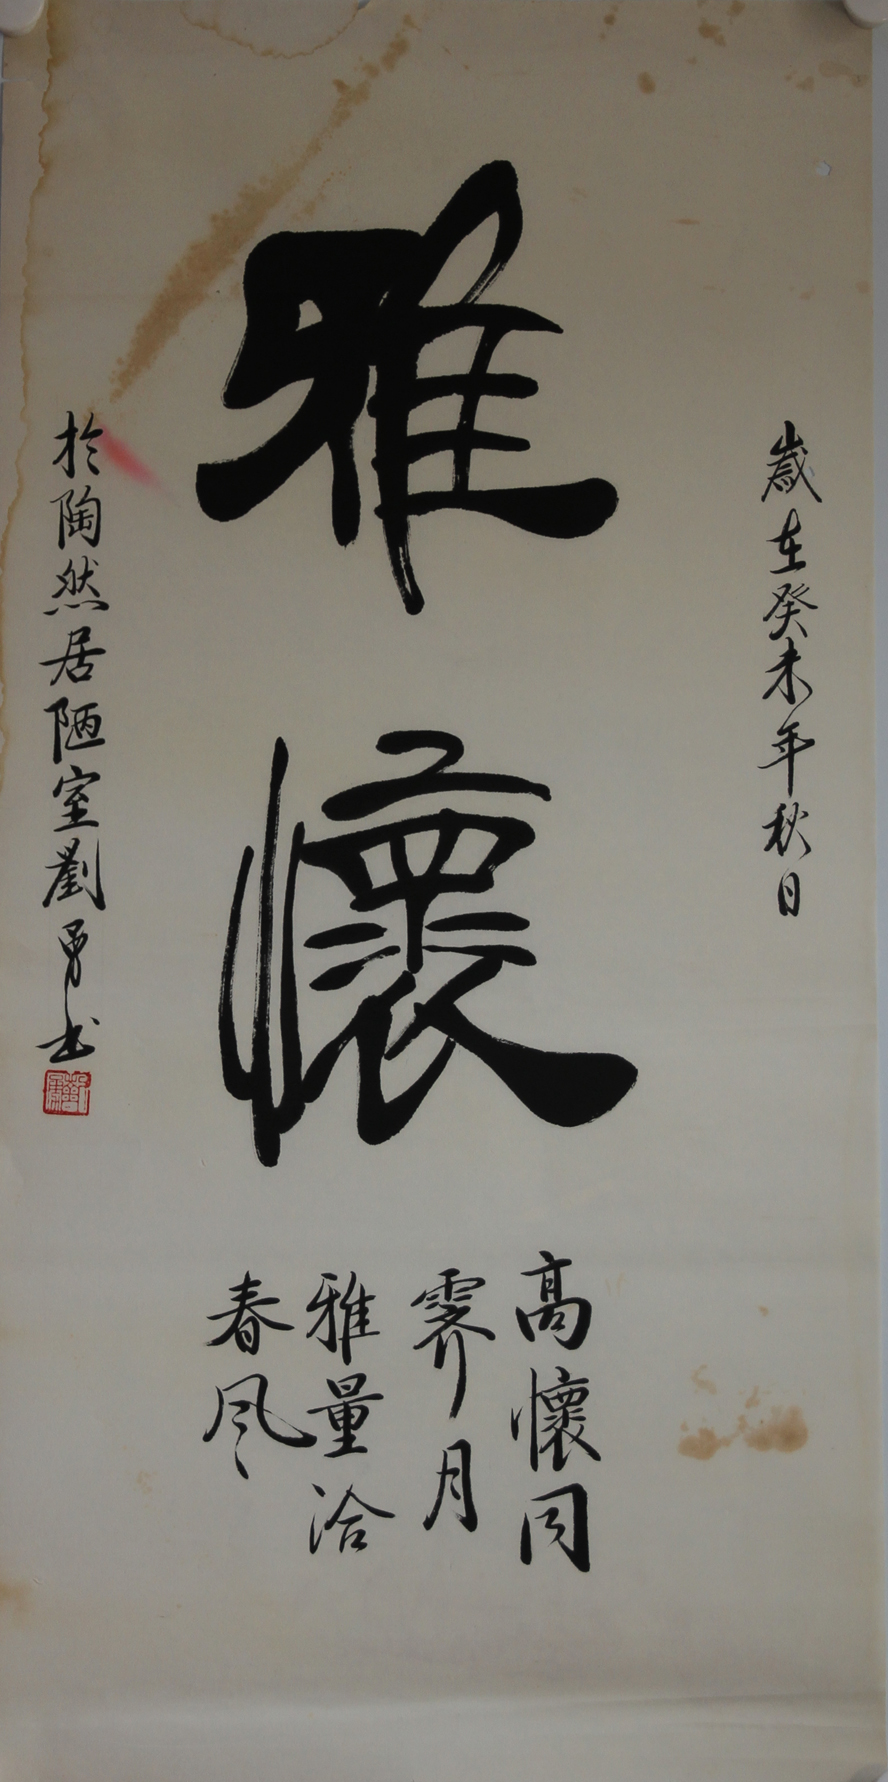 歲在癸未年秋日
雅懷
高懷同
霽月
雅量洽
春风
於陶然居陋室劉勇书